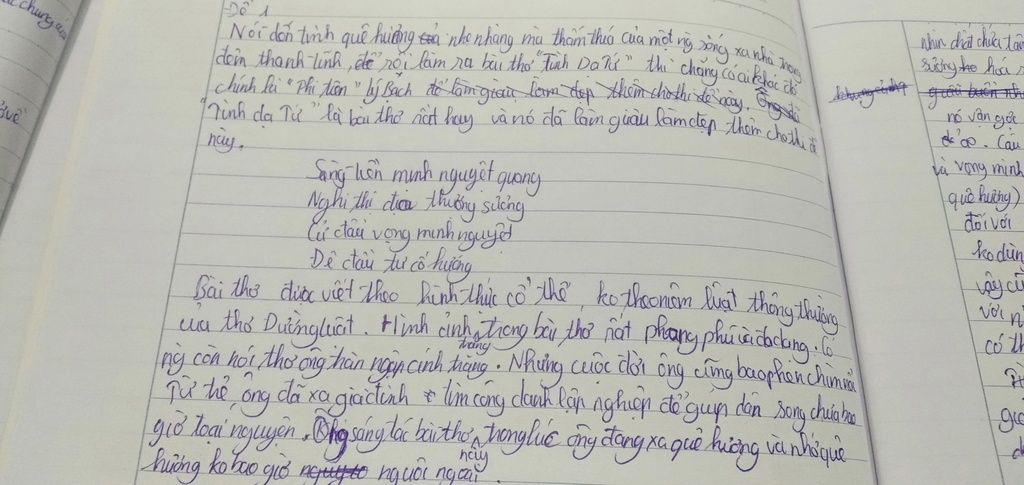 Đề 1
Nói đến tình quê hương nhẹ nhàng mà thấm thía của một ng sống xa nhà trong
đêm thanh tĩnh, để rồi làm ra bài thơ "Tĩnh Dạ Tứ" thì chẳng có ai khác đó
chính là "Phi tiên" Lý Bạch để làm giàu làm đẹp thêm cho thi đề này. Ông đã
"Tình dạ Tứ" là bài thơ rất hay và nó đã làm giàu làm đẹp thêm cho thi đề
này.
Sàng tiền minh nguyệt quang
Nghi thị địa thượng sương
Cử đầu vọng minh nguyệt
Đê đầu tư cố hương
Bài thơ được viết theo hình thức cổ thể, ko theo niêm luật thông thường
của thơ Đường luật. Hình ảnh trăng trong bài thơ rất phong phú và đa dạng. Có
ng còn nói, thơ ông tràn ngập ánh trăng. Nhưng cuộc đời ông cũng bao phen chìm nổi
Từ trẻ, ông đã xa gia đình tìm công danh lập nghiệp để giúp dân song chưa bao
giờ toại nguyện. Ông sáng tác bài thơ này trong lúc ông đang xa quê hương và nhớ quê
hương ko bao giờ nguôi ngoai.
nhìn
sương
nó vẫn gợi
để ảo. Câu
và vọng minh
quê hương)
đối với
ko dùn
vậy cũ
với n
có th